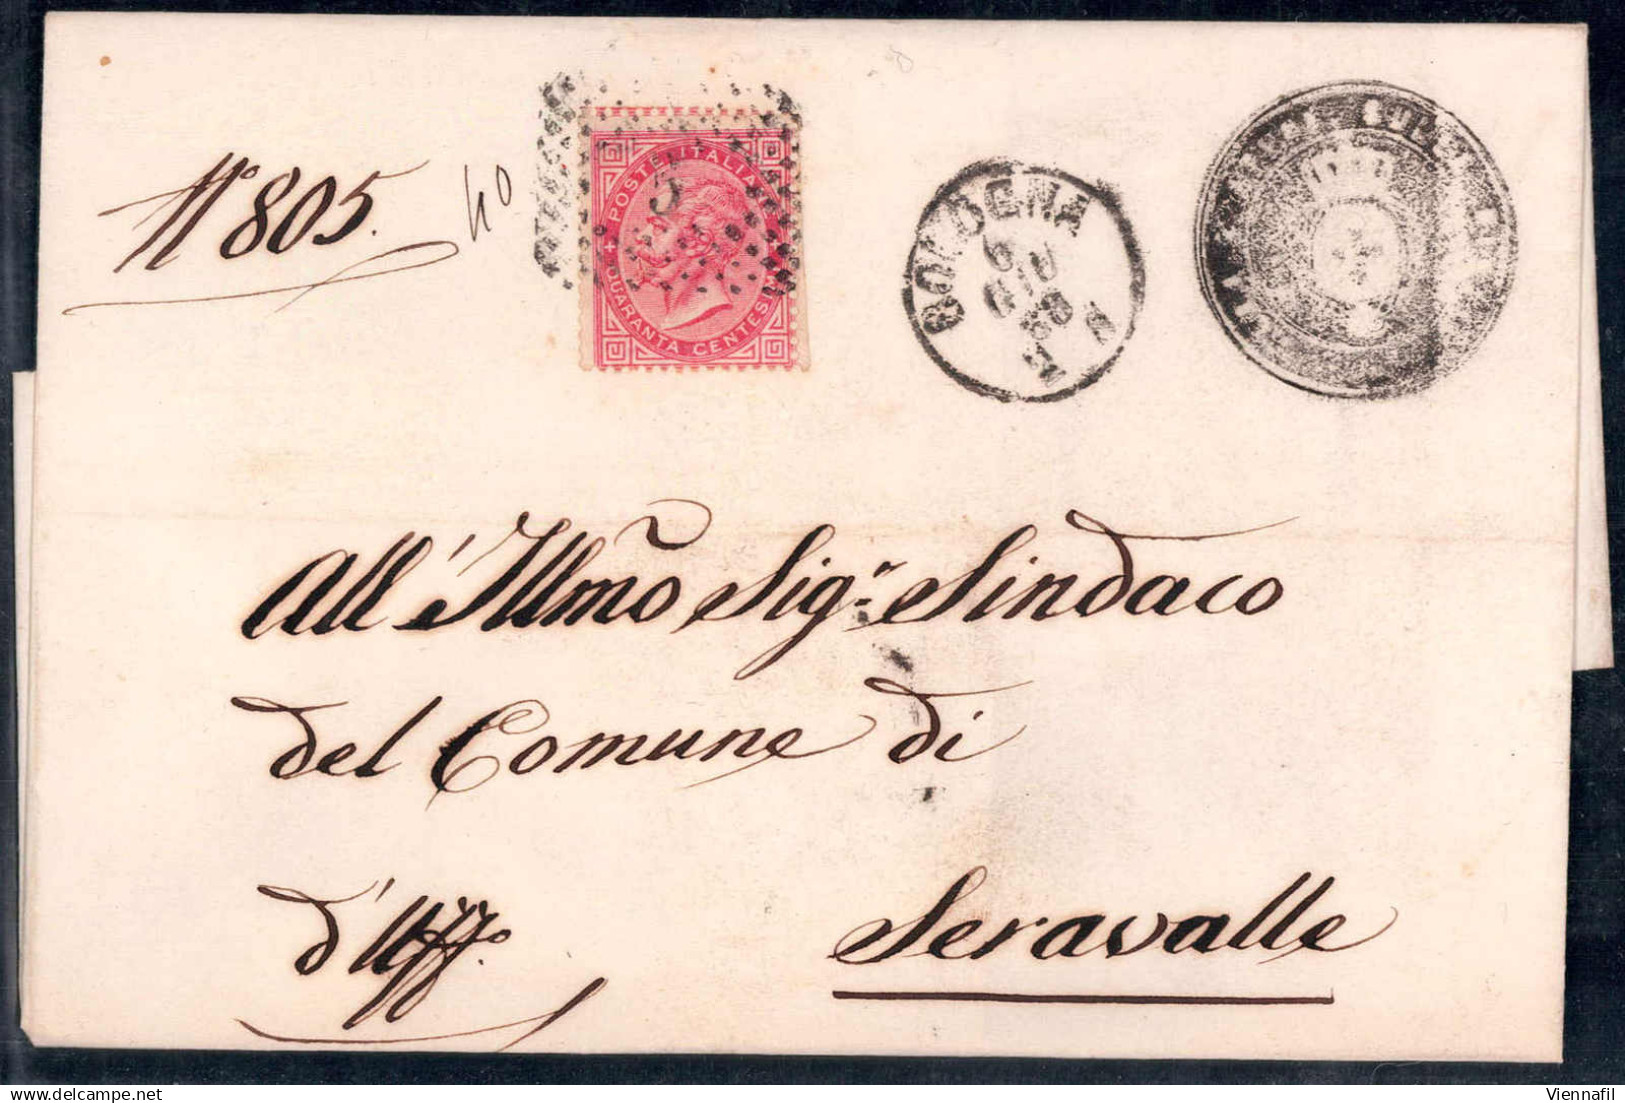 N° 805.
40
POSTE ITALIANE
QUARANTA CENTESIMI
BONDENA
6
GIU
68
All'Illmo Sigr. Sindaco
del Comune di
d'Uffo.
Seravalle
Viennafil